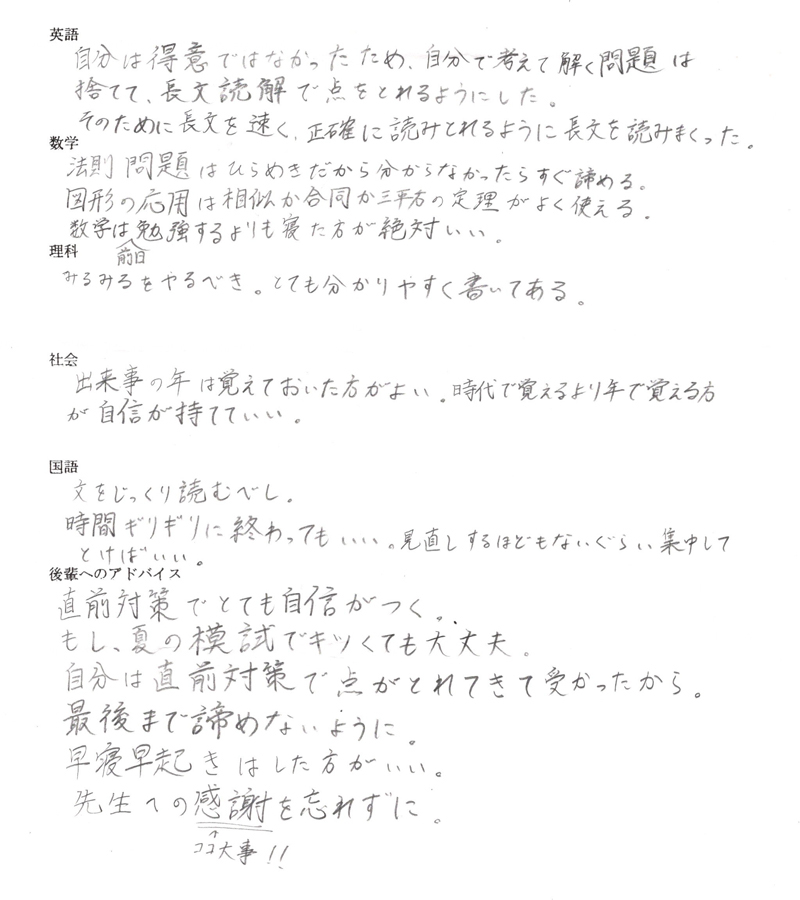 英語
自分は得意ではなかったため、自分で考えて解く問題は
捨てて、長文読解で点をとれるようにした。
そのために長文を速く、正確に読みとれるように長文を読みまくった。
数学
法則問題はひらめきだから分からなかったらすぐ諦める。
図形の応用は相似か合同か三平方の定理がよく使える。
数学は勉強するよりも寝た方が絶対いい。
前日
理科
みるみるをやるべき。とても分かりやすく書いてある。
社会
出来事の年は覚えておいた方がよい。時代で覚えるより年で覚える方
が自信が持てていい。
国語
文をじっくり読むべし。
時間ギリギリに終わってもいい。見直しするほどもないぐらい集中して
とけばいい。
後輩へのアドバイス
直前対策でとても自信がつく。
もし、夏の模試でキツくても大丈夫。
自分は直前対策で点がとれてきて受かったから。
最後まで諦めないように。
早寝早起きはした方がいい。
先生への感謝を忘れずに。
↑
ココ大事!!